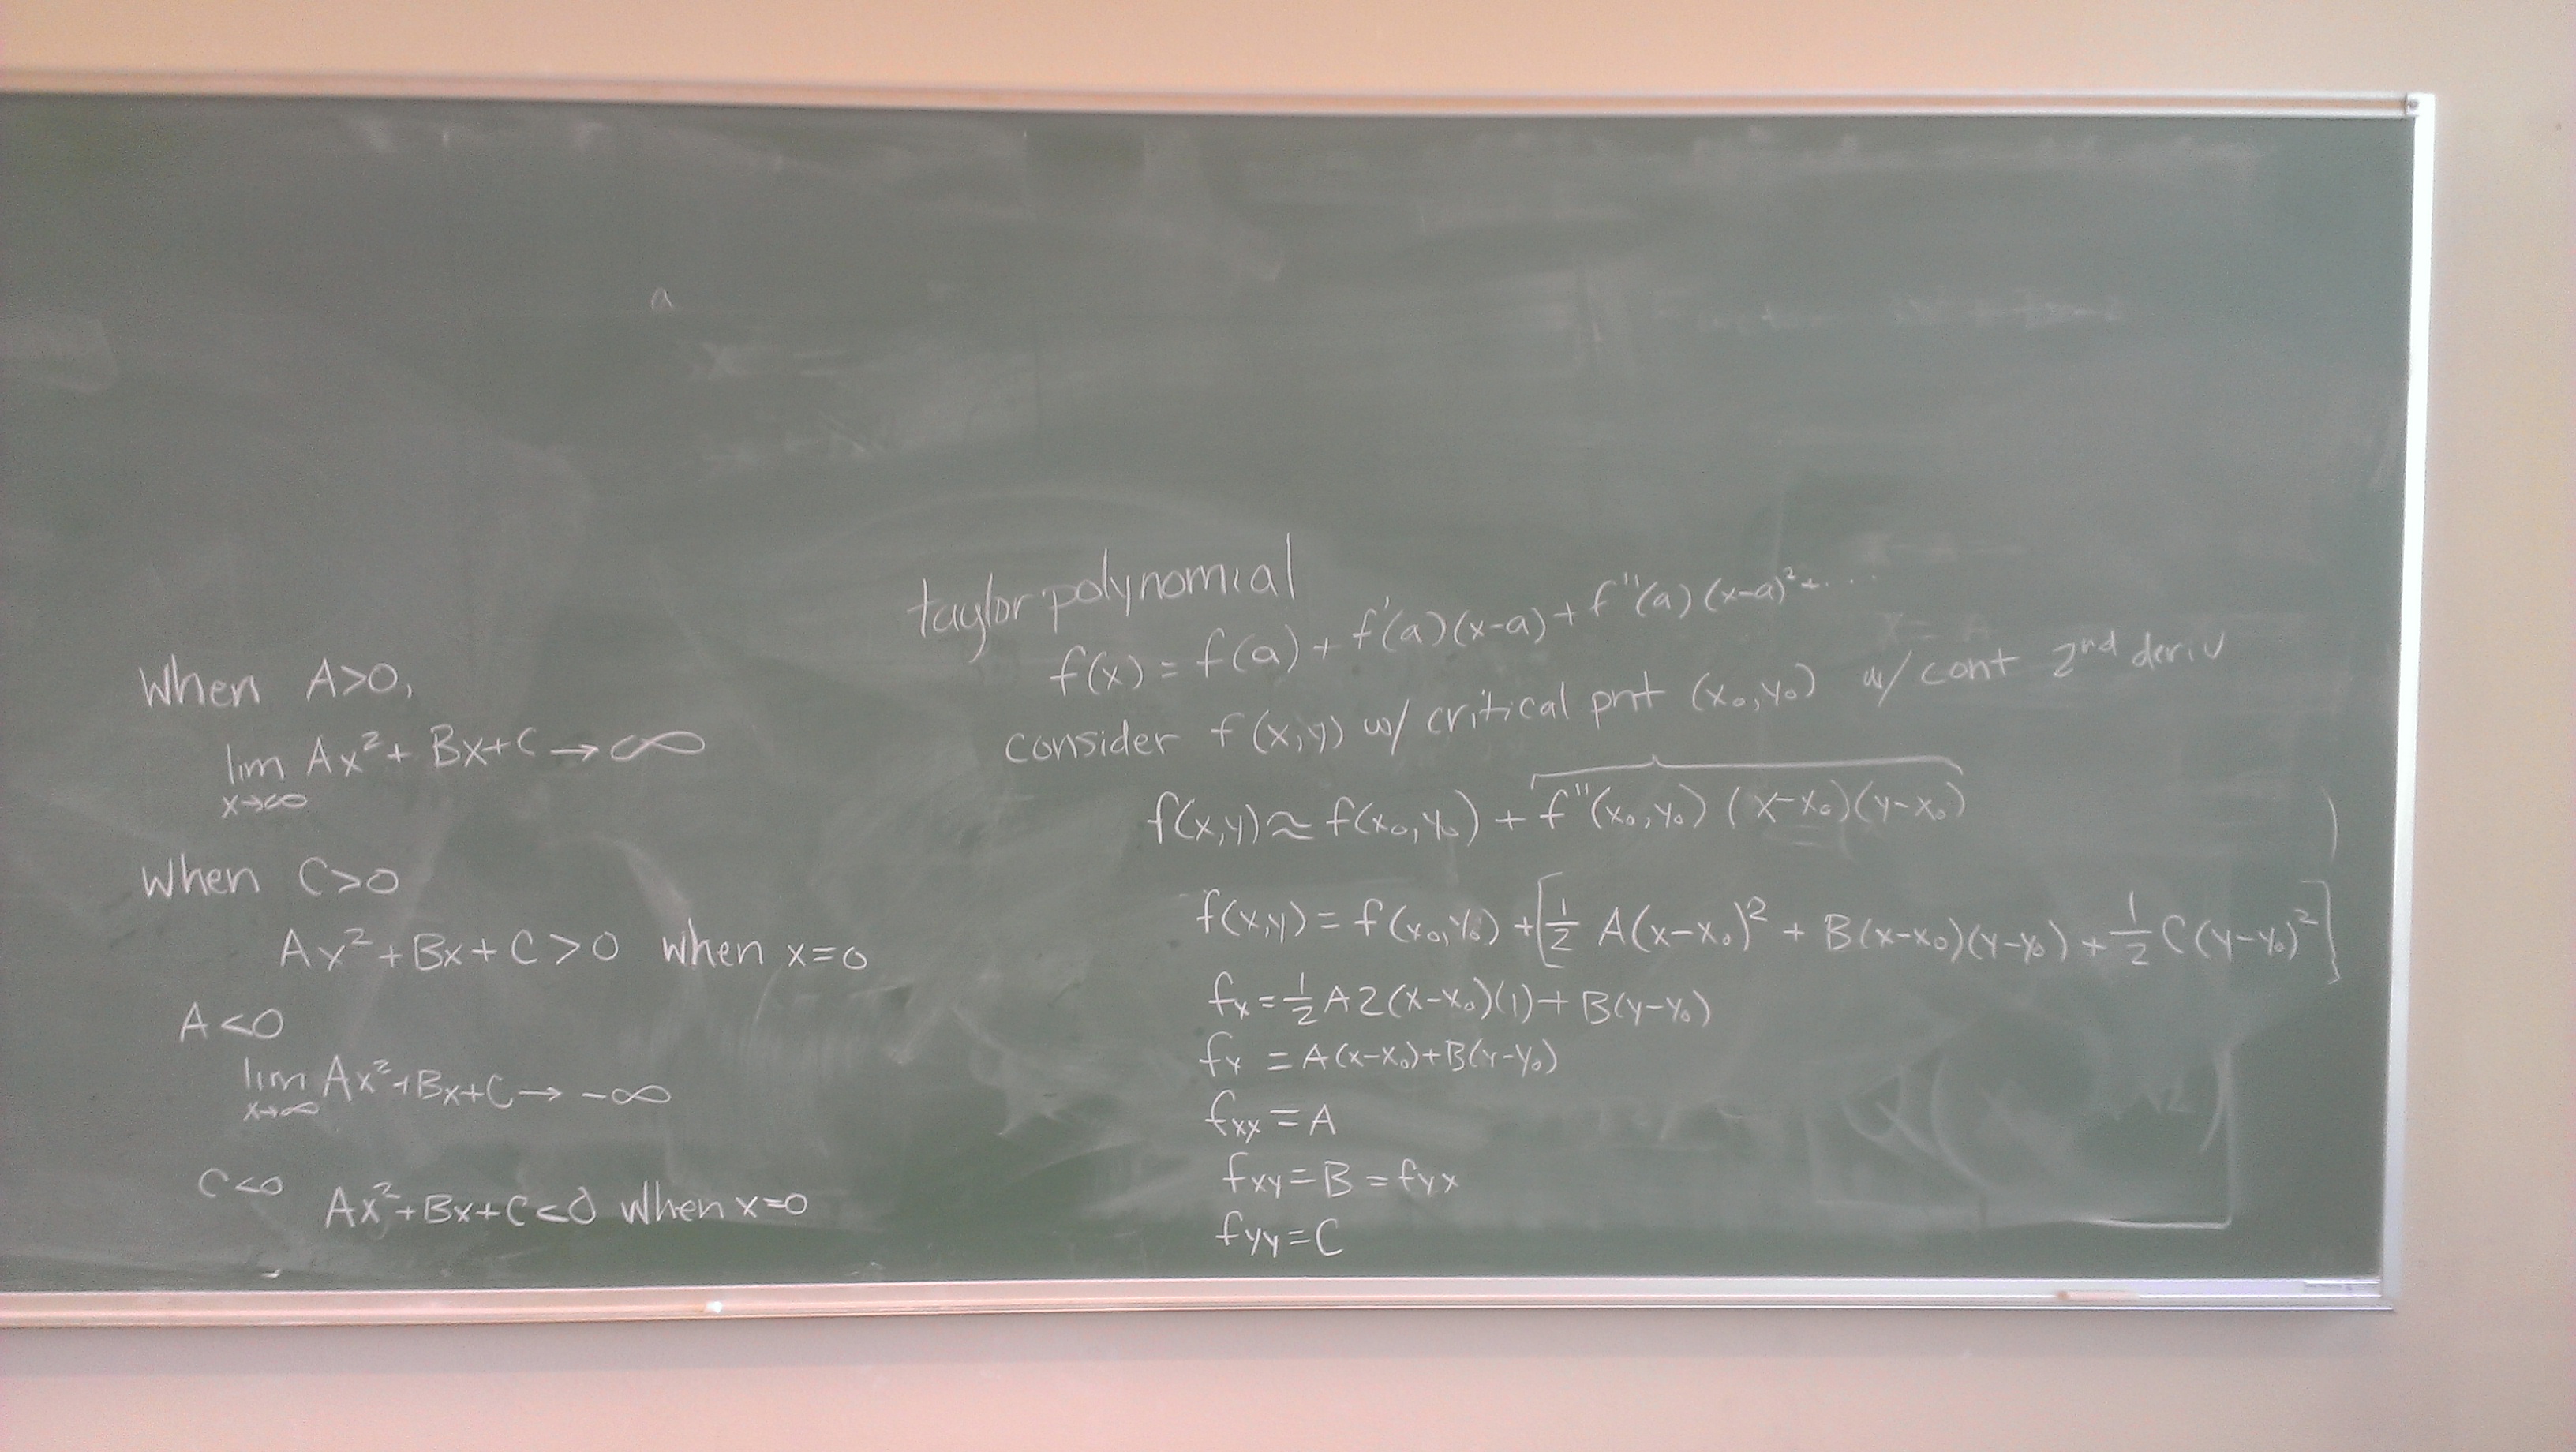 a
When A>0,
lim Ax²+ Bx+C → ∞
x→∞
When C>0
Ax²+Bx+C>0 when x=0
A<0
lim Ax²+Bx+C → -∞
x→∞
C<0 Ax²+Bx+C<0 when x=0
taylor polynomial
f(x) = f(a) + f'(a)(x-a) + f''(a)(x-a)²+...
consider f(x,y) w/ critical pnt (x₀,y₀) w/ cont 2nd deriv
f(x,y) ≈ f(x₀,y₀) + f''(x₀,y₀) (x-x₀)(y-x₀)
f(x,y) = f(x₀,y₀) + [1/2 A(x-x₀)² + B(x-x₀)(y-y₀) + 1/2 C(y-y₀)²]
fx = 1/2 A2(x-x₀)(1)+ B(y-y₀)
fx = A(x-x₀)+B(y-y₀)
fxx = A
fxy = B = fyx
fyy = C